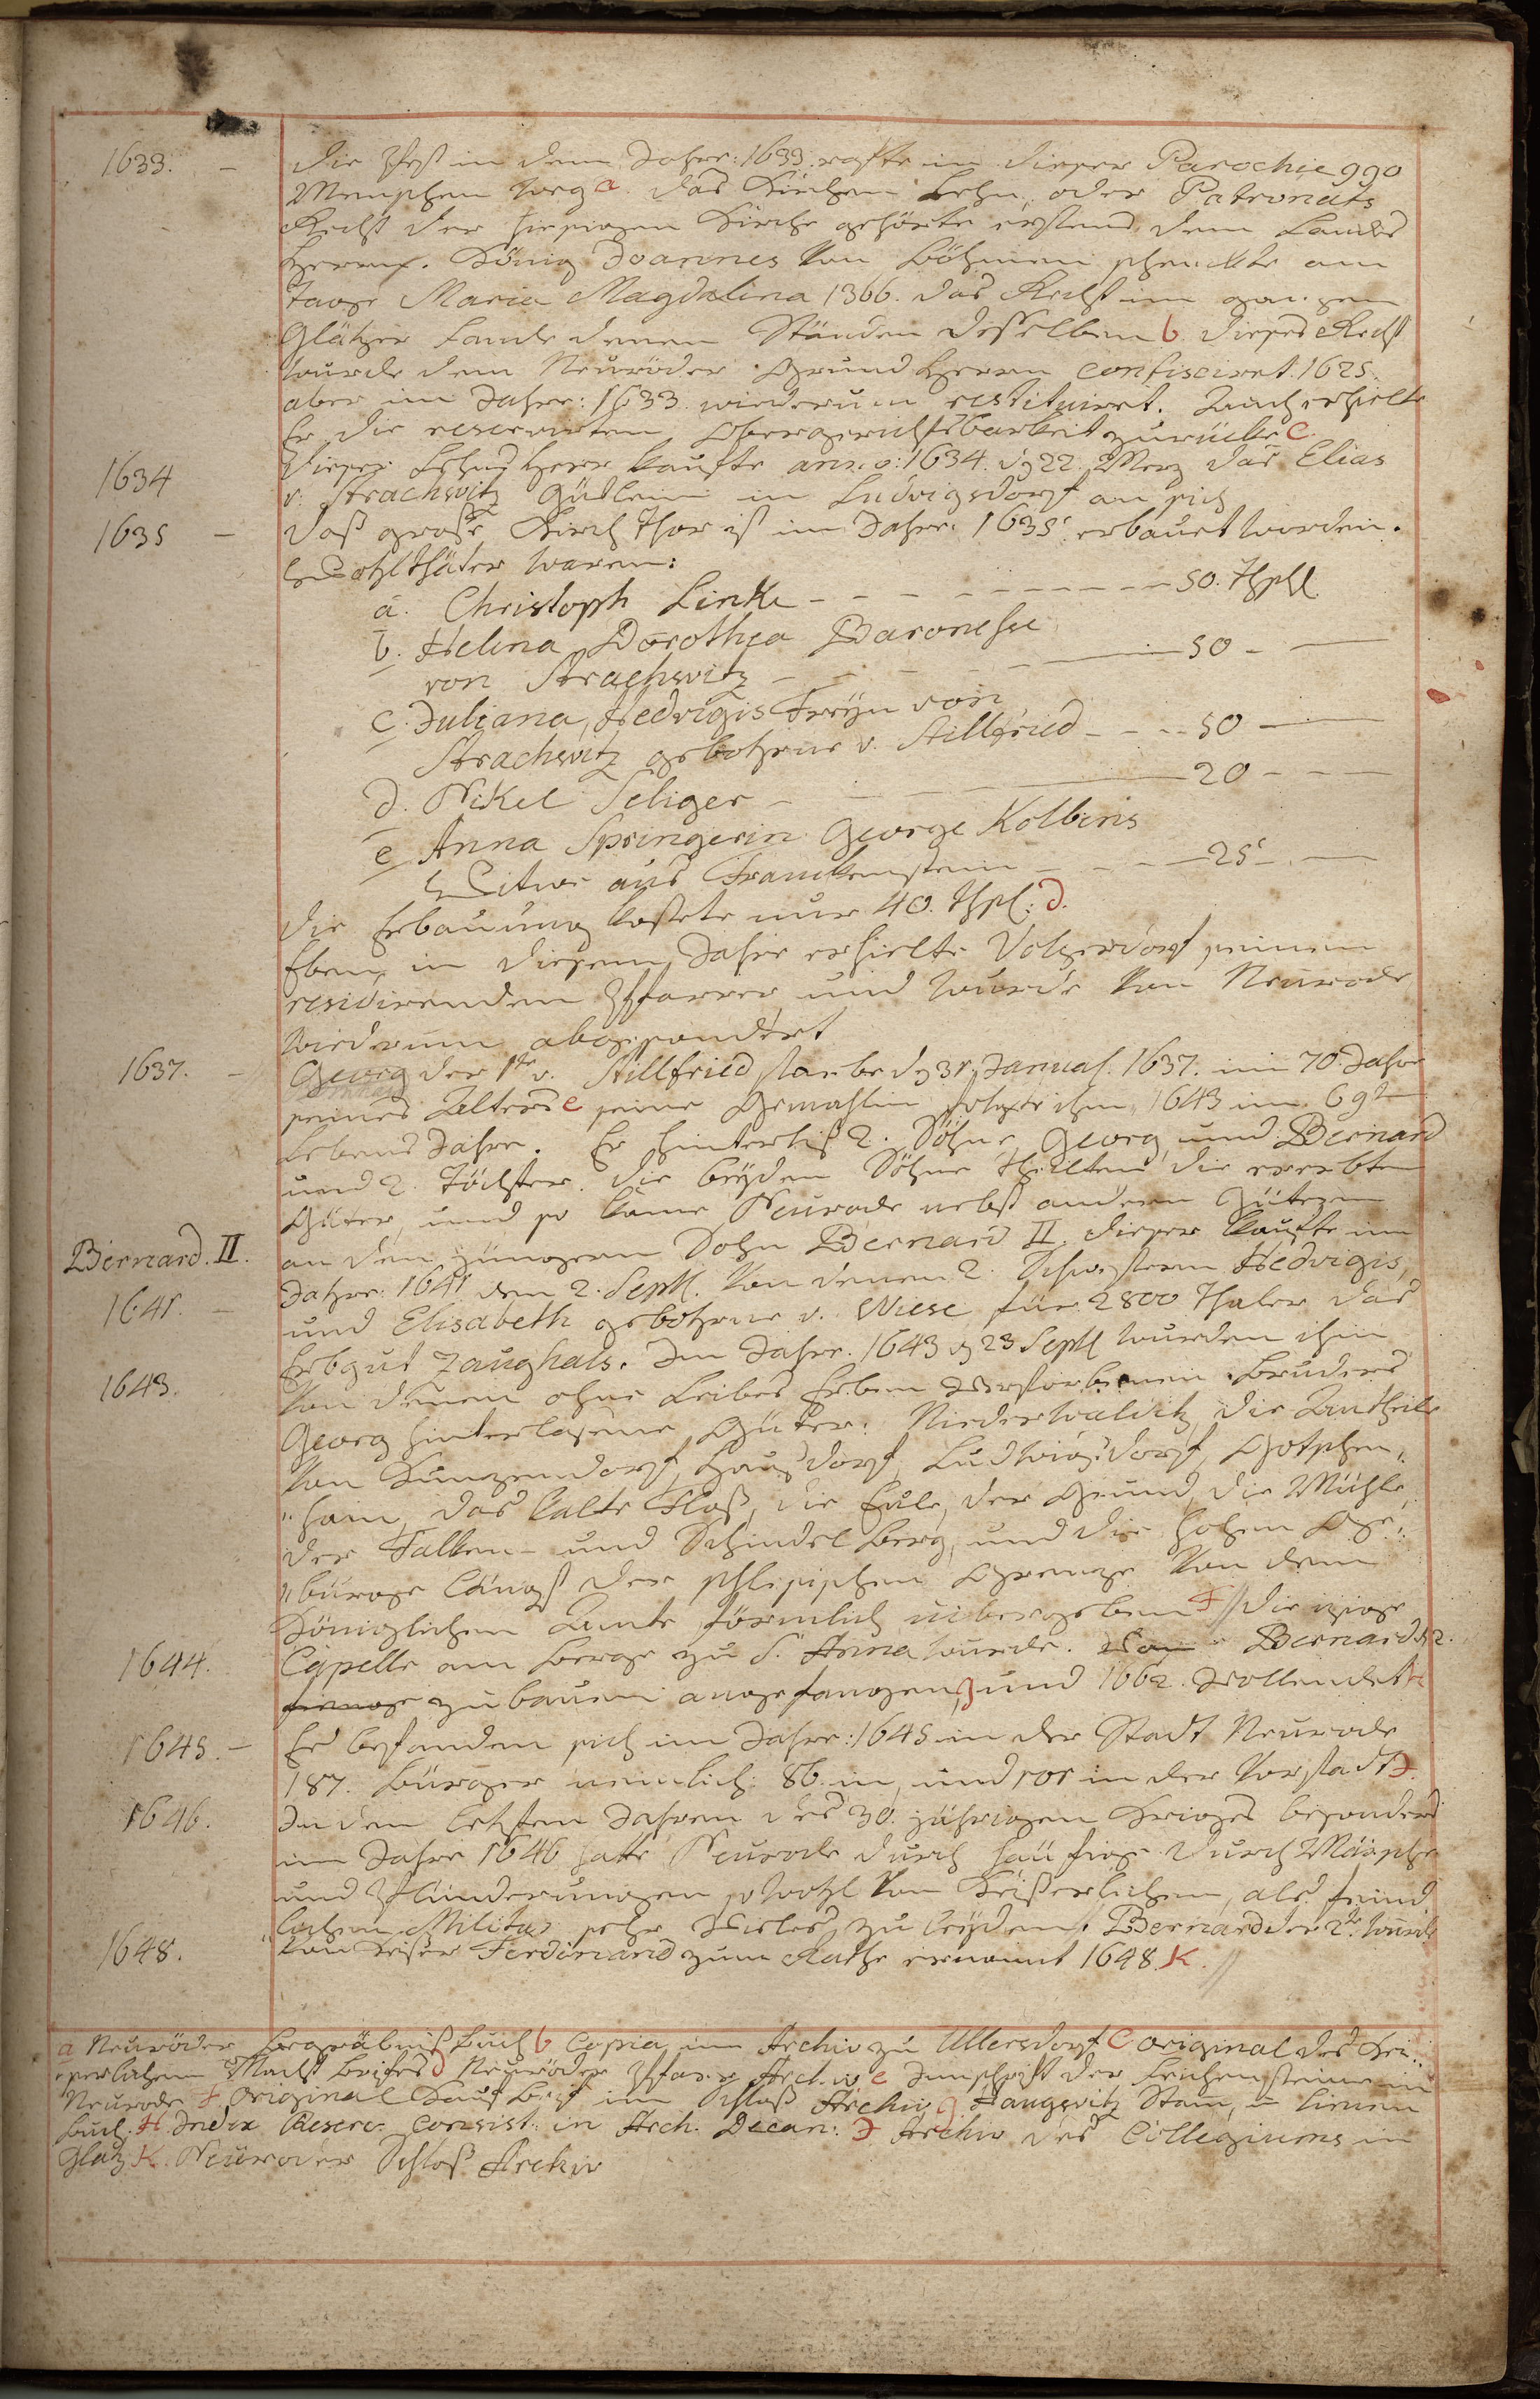 1633. – Die Pest in dem Jahre: 1633. rafte in dieser Parochie 990
Menschen weg a. das Kirchen Lehn oder Patronats
Recht der hiesigen Kirche gehörte erstens dem Landes
Herrn. König Joannes von Böhmen schenckte am
Tage Maria Magdalina 1366. das Recht im ganzen
Glätzer Lande denen Ständen desselben b dieses Recht
wurde dem Neuröder Grund Herrn confisciret. 1625.
aber im Jahre: 1633. wiederum restituiret. Auch erhielte
Er die reservirten Obergerichtsbarkeit zurücke c.
1634 Dieser Lehns Herr kaufte anno: 1634. d 22. Merz das Elias
v. Strachwitz Gütlein in Ludvigsdorf an sich
1635 – Daß große Kirch Thor ist im Jahre: 1635 erbauet worden.
Wohlthäter waren:
a. Christoph Linke – – – – – – – – – 50. Thsl
b. Helena Dorothea Baronesse
von Strachwitz – – – – 50 – –
c. Juliana, Hedvigis Freyin von
Strachwitz gebohrne v. Stillfried – – – 50 –
d. Nikel Seliger – – – 20 – – –
e Anna Springerin George Kolbins
Witwe aus Franckenstein – – – 25 – –
Die Erbauung kostete nur 40. Thsl: d.
Eben in diesem Jahre erhielte Volpersdorf seinen
residirenden Pfarrer und wurde von Neurode
wiederum abgesondert
1637. – Georg der 1te v. Stillfried starbe d 31 Januar. 1637. im 70. Jahre
seines Alters e seine Gemahlin folgte ihm 1643 im 69t
Lebens Jahre. Er hinterliß 2. Söhne Georg und Bernard
und 2. Töchter. die beyden Söhne theilten die ererbten
Güter, und so kame Neurode nebst andern Gütern
Bernard. II. an den jüngern Sohn Bernard II. dieser kaufte im
1641. – Jahre: 1641 den 2. Sept. von denen 2. Schwestern Hedvigis,
und Elisabeth gebohrne v. Wiese für 2800 Thaler das
Erbgut Zaughals. Im Jahre. 1643 d 23 Sept wurden ihm
1643. von denen ohne Leibes Erben verstorbenen Bruders
Georg hinterlasene Güter: Niederwalditz, die Antheile
von Kunzendorf, Hausdorf, Ludwigsdorf, Gotschen„
„hain, das kalte Floß, die Eule, der Grund, die Mühle,
der Falken- und Schindel Berg, und die hohen Ge„
„bürge längst der schlesischen Grenze von dem
Königlichen Amte förmlich übergeben f // die izige
1644. Capelle am Berge zu S. Anna wurde. von Bernard d 2.
fienge zu bauen angefangen, g und 1662. vollendet h
1645. – Es befanden sich im Jahre: 1645 in der Stadt Neurode
187. Bürger nemlich: 86. in, und 101 in der Vorstadt J.
1646. In den letzten Jahren des 30. jährigen Krieges besonders
im Jahre 1646 hatte Neurode durch häufige durch Märsche
und Plünderungen so wohl von Keißerlichen, als feind
„lichen Militar sehr vieles zu leyden. Bernard der 2te. wurde
1648. von Keißer Ferdinand zum Rathe ernannt 1648. K. //
a Neuröder Begräbniß Buch b Copia im Archiv zu Ullersdorf c original des Kei„
„serlichen Macht Briefes d Neuröder Pfarr Archiv e Innschrift der Leichensteine in
Neurode f Original Kauf Brief im Schloß Archiv g. Haugwitz Stam„ Linien
Buch. H. Index Reserv. Consist: in Arch. Decan: J Archiv des Collegiums in
Glatz K. Neuroder Schloß Archiv